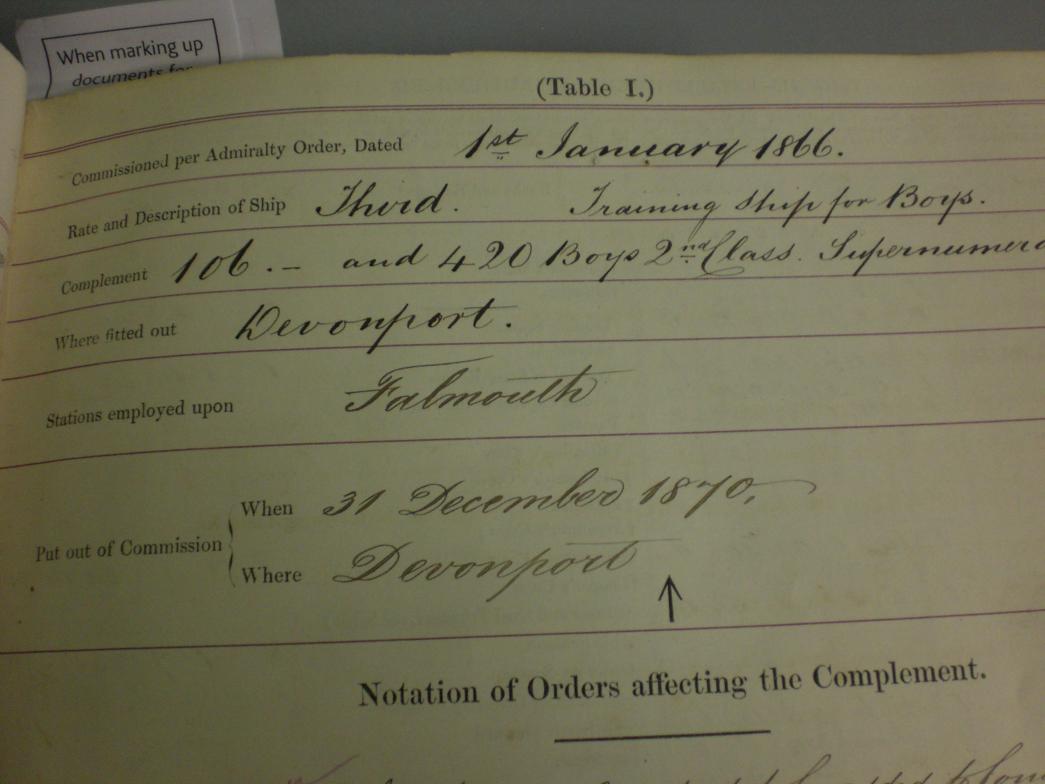 When marking up
documents for
(Table I.)
Commissioned per Admiralty Order, Dated 1st January 1866.
Rate and Description of Ship Third. Training Ship for Boys.
Complement 106.- and 420 Boys 2nd Class. Supernumera
Where fitted out Devonport.
Stations employed upon Falmouth
Put out of Commission
When 31 December 1870.
Where Devonport
Notation of Orders affecting the Complement.